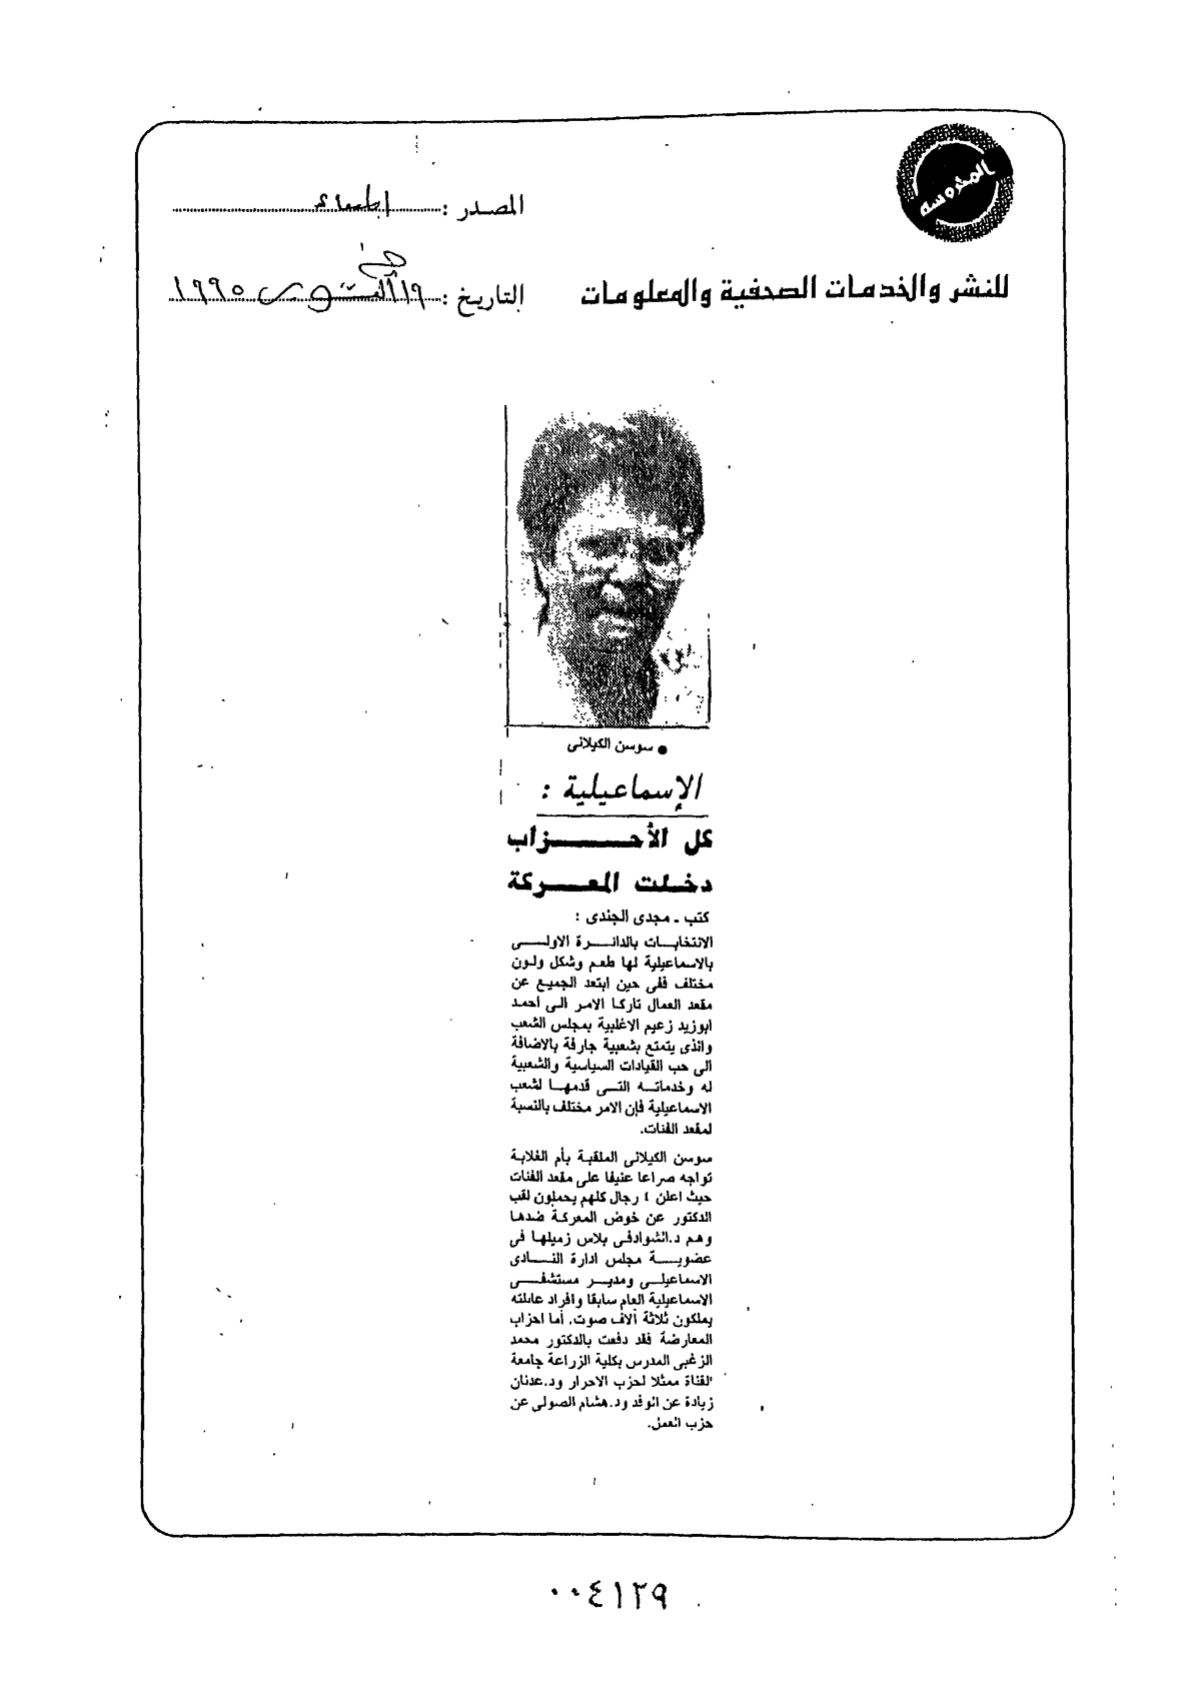 المحروسه
المصدر :
للنشر والخدمات الصحفية والمعلومات
التاريخ : ١٩ أكتوبر ١٩٩٥
● سوسن الكيلانى
الإسماعيلية :
كل الأحـــــزاب
دخـلت المعـــركة
كتب ـ مجدى الجندى :
الانتخابــات بالدائــرة الاولــى
بالاسماعيلية لها طعم وشكل ولون
مختلف ففى حين ابتعد الجميع عن
مقعد العمال تاركا الامر الى احمد
ابوزيد زعيم الاغلبية بمجلس الشعب
والذى يتمتع بشعبية جارفة بالاضافة
الى حب القيادات السياسية والشعبية
له وخدماتــه التــى قدمهــا لشعب
الاسماعيلية فإن الامر مختلف بالنسبة
لمقعد الفئات.
سوسن الكيلانى الملقبة بأم الغلابة
تواجه صراعا عنيفا على مقعد الفئات
حيث اعلن ٤ رجال كلهم يحملون لقب
الدكتور عن خوض المعركة ضدها
وهم د.الشوادفى بلاس زميلها فى
عضويــة مجلس ادارة النــادى
الاسماعيلــى ومديــر مستشفــى
الاسماعيلية العام سابقا وافراد عائلته
يملكون ثلاثة آلاف صوت. أما احزاب
المعارضة فقد دفعت بالدكتور محمد
الزغبى المدرس بكلية الزراعة جامعة
القناة ممثلا لحزب الاحرار ود.عدنان
زيادة عن الوفد ود.هشام الصولى عن
حزب العمل.
٠٠٤١٢٩